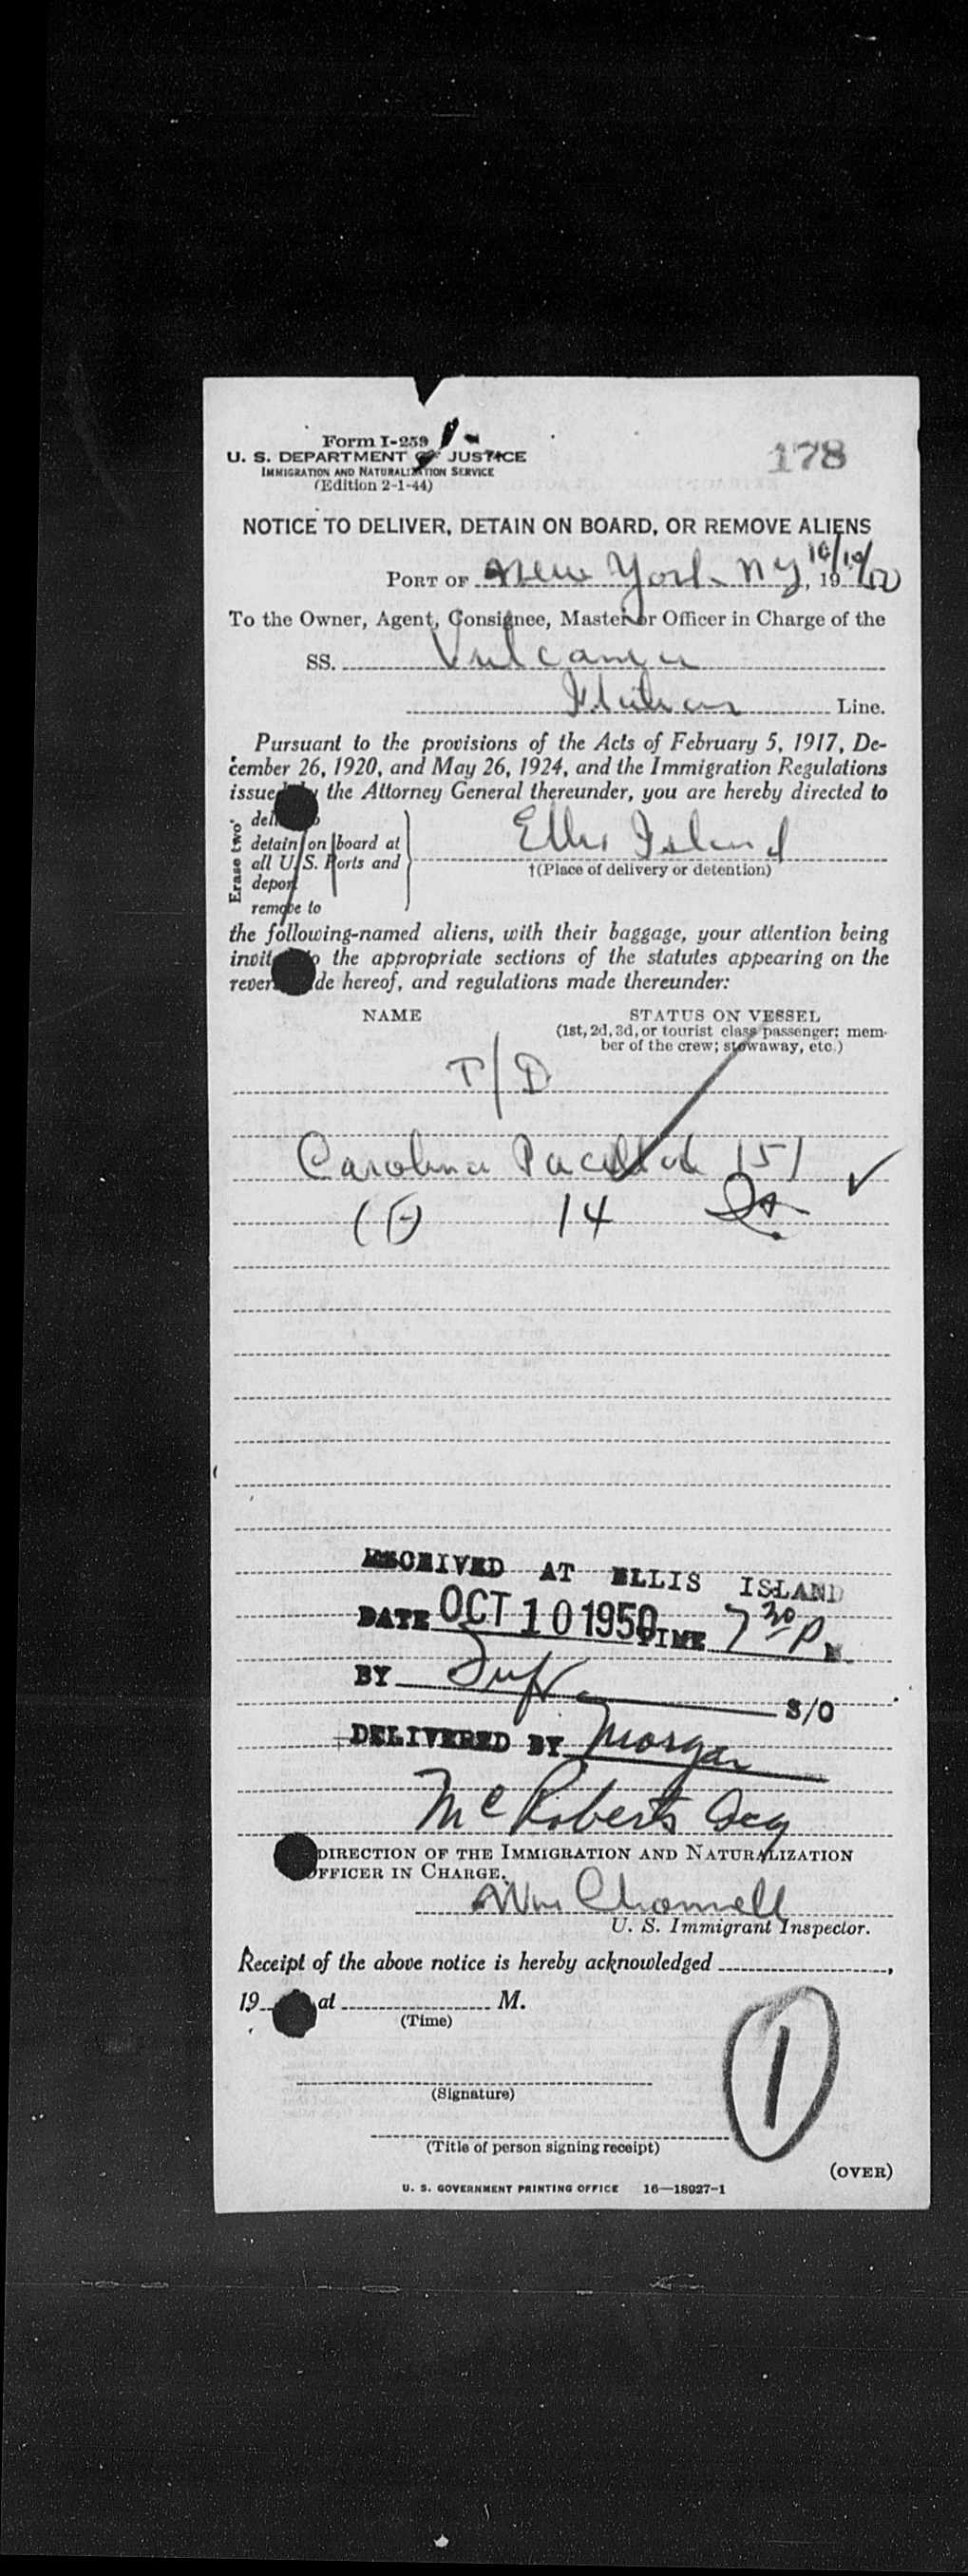 Form I-259
U. S. DEPARTMENT OF JUSTICE
IMMIGRATION AND NATURALIZATION SERVICE
(Edition 2-1-44)
178
NOTICE TO DELIVER, DETAIN ON BOARD, OR REMOVE ALIENS
PORT OF New York NY, 10/10/50 19
To the Owner, Agent, Consignee, Master or Officer in Charge of the
SS. Vulcania
Italian Line.
Pursuant to the provisions of the Acts of February 5, 1917, De-
cember 26, 1920, and May 26, 1924, and the Immigration Regulations
issued by the Attorney General thereunder, you are hereby directed to
Erase two*
detain on board at
all U. S. Ports and
deport
remove to
Ellis Island
†(Place of delivery or detention)
the following-named aliens, with their baggage, your attention being
invited to the appropriate sections of the statutes appearing on the
reverse side hereof, and regulations made thereunder:
NAME STATUS ON VESSEL
(1st, 2d, 3d, or tourist class passenger; mem-
ber of the crew; stowaway, etc.)
T/D
Carolina 151
14
RECEIVED AT ELLIS ISLAND
DATE OCT 10 1950 TIME 7 30 P M.
BY S/O
DELIVERED BY Morgan
McRoberts
DIRECTION OF THE IMMIGRATION AND NATURALIZATION
OFFICER IN CHARGE.
Wm
U. S. Immigrant Inspector.
Receipt of the above notice is hereby acknowledged ,
19 at M.
(Time)
1
(Signature)
(Title of person signing receipt)
(OVER)
U. S. GOVERNMENT PRINTING OFFICE 16—18027-1